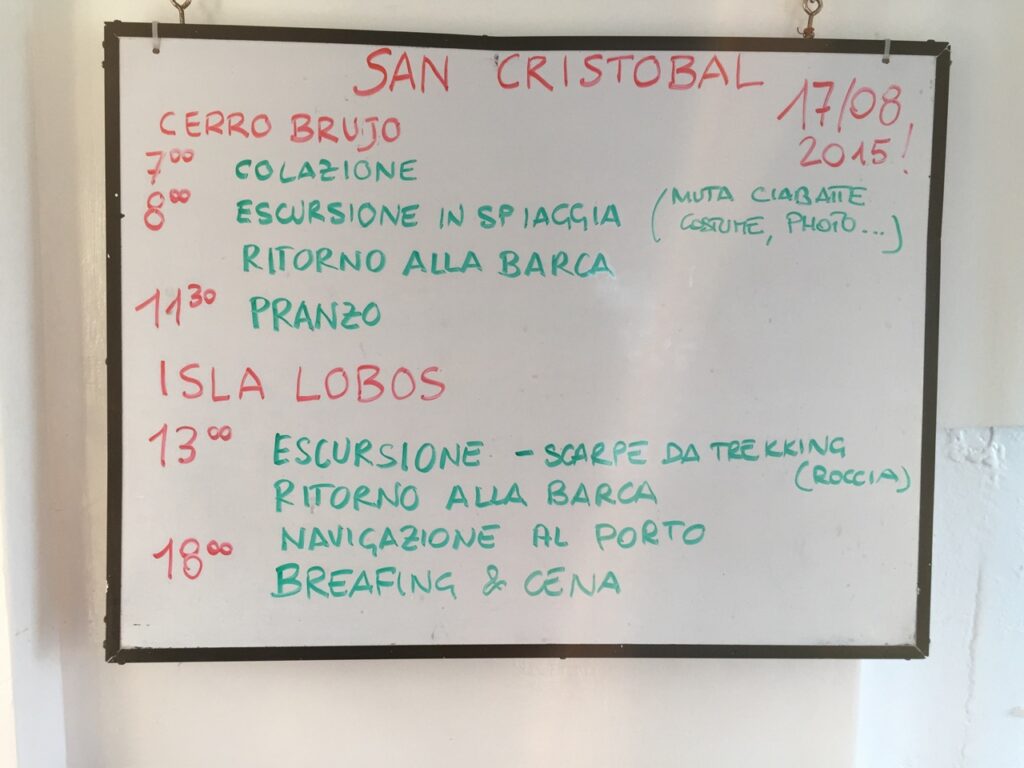 SAN CRISTOBAL
17/08
2015!
CERRO BRUJO
7⁰⁰ COLAZIONE
8⁰⁰ ESCURSIONE IN SPIAGGIA (MUTA CIABATTE
COSTUME, PHOTO...)
RITORNO ALLA BARCA
11³⁰ PRANZO
ISLA LOBOS
13⁰⁰ ESCURSIONE - SCARPE DA TREKKING
(ROCCIA)
RITORNO ALLA BARCA
NAVIGAZIONE AL PORTO
18⁰⁰ BREAFING & CENA